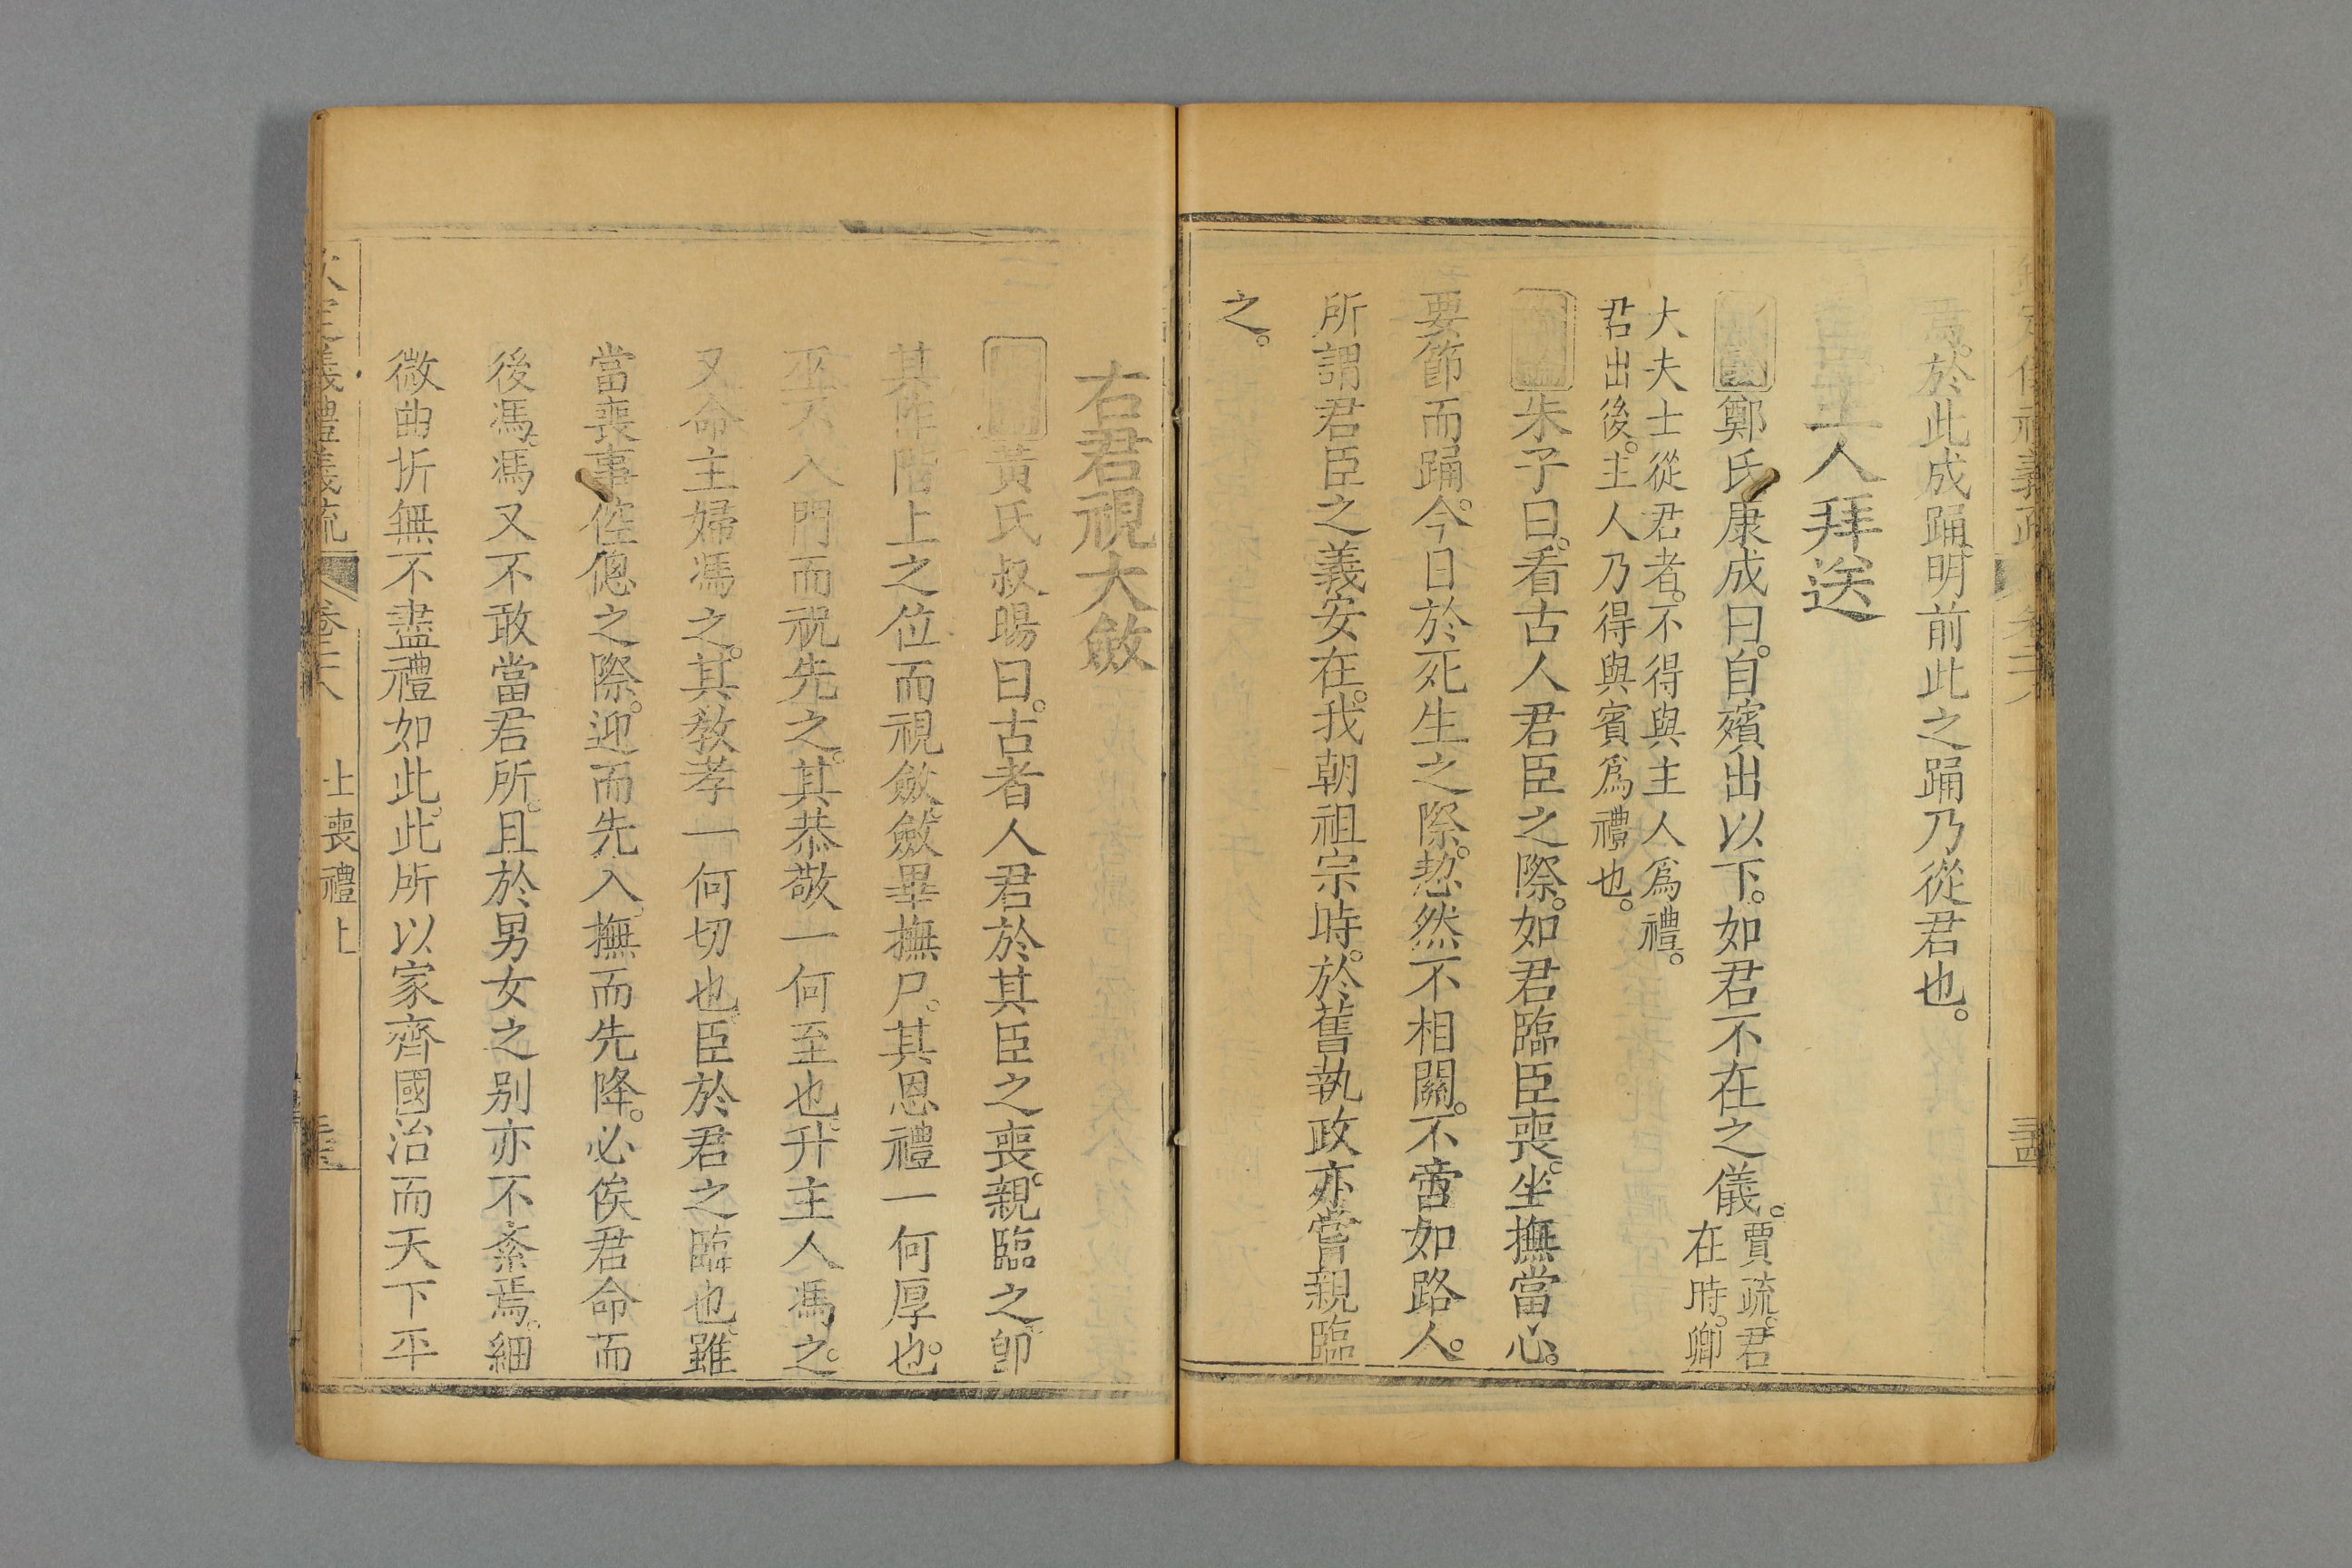 焉。於此成踊。明前此之踊乃從君也。
主人拜送
正義鄭氏康成曰。自殯出以下。如君不在之儀。賈疏。君在時。卿
大夫士從君者。不得與主人爲禮。
君出後。主人乃得與賓爲禮也。
朱子曰。看古人君臣之際。如君臨臣喪。坐撫當心。
要節而踊。今日於死生之際。恝然不相關。不啻如路人。
所謂君臣之義安在。我朝祖宗時。於舊執政亦嘗親臨
之。
右君視大斂
黃氏叔暘曰。古者人君於其臣之喪。親臨之。卽
其阼階上之位而視斂。斂畢撫尸。其恩禮一何厚也。
巫不入門而祝先之。其恭敬一何至也。升主人馮之。
又命主婦馮之。其敎孝一何切也。臣於君之臨也。雖
當喪事倥傯之際。迎而先入。撫而先降。必俟君命而
後馮。馮又不敢當君所。且於男女之别亦不紊焉。細
微曲折無不盡禮如此。此所以家齊國治而天下平
義禮義疏 卷二十八 士喪禮上